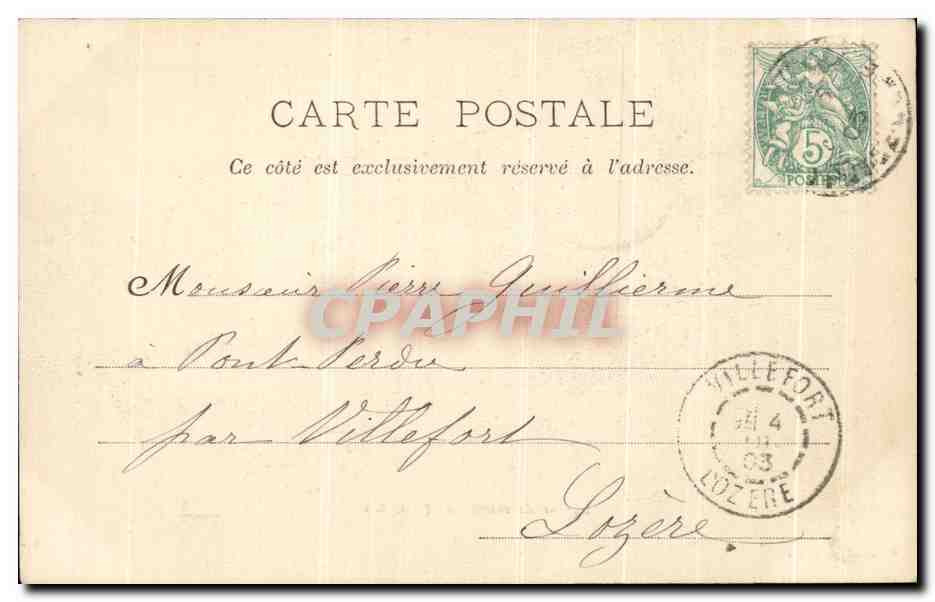 CARTE POSTALE
Ce côté est exclusivement réservé à l'adresse.
5c
POSTES
Monsieur Pierre Guillierme
CPAPHIL
à Pont-Perdu
par Villefort
Lozère
VILLEFORT
4
03
LOZERE